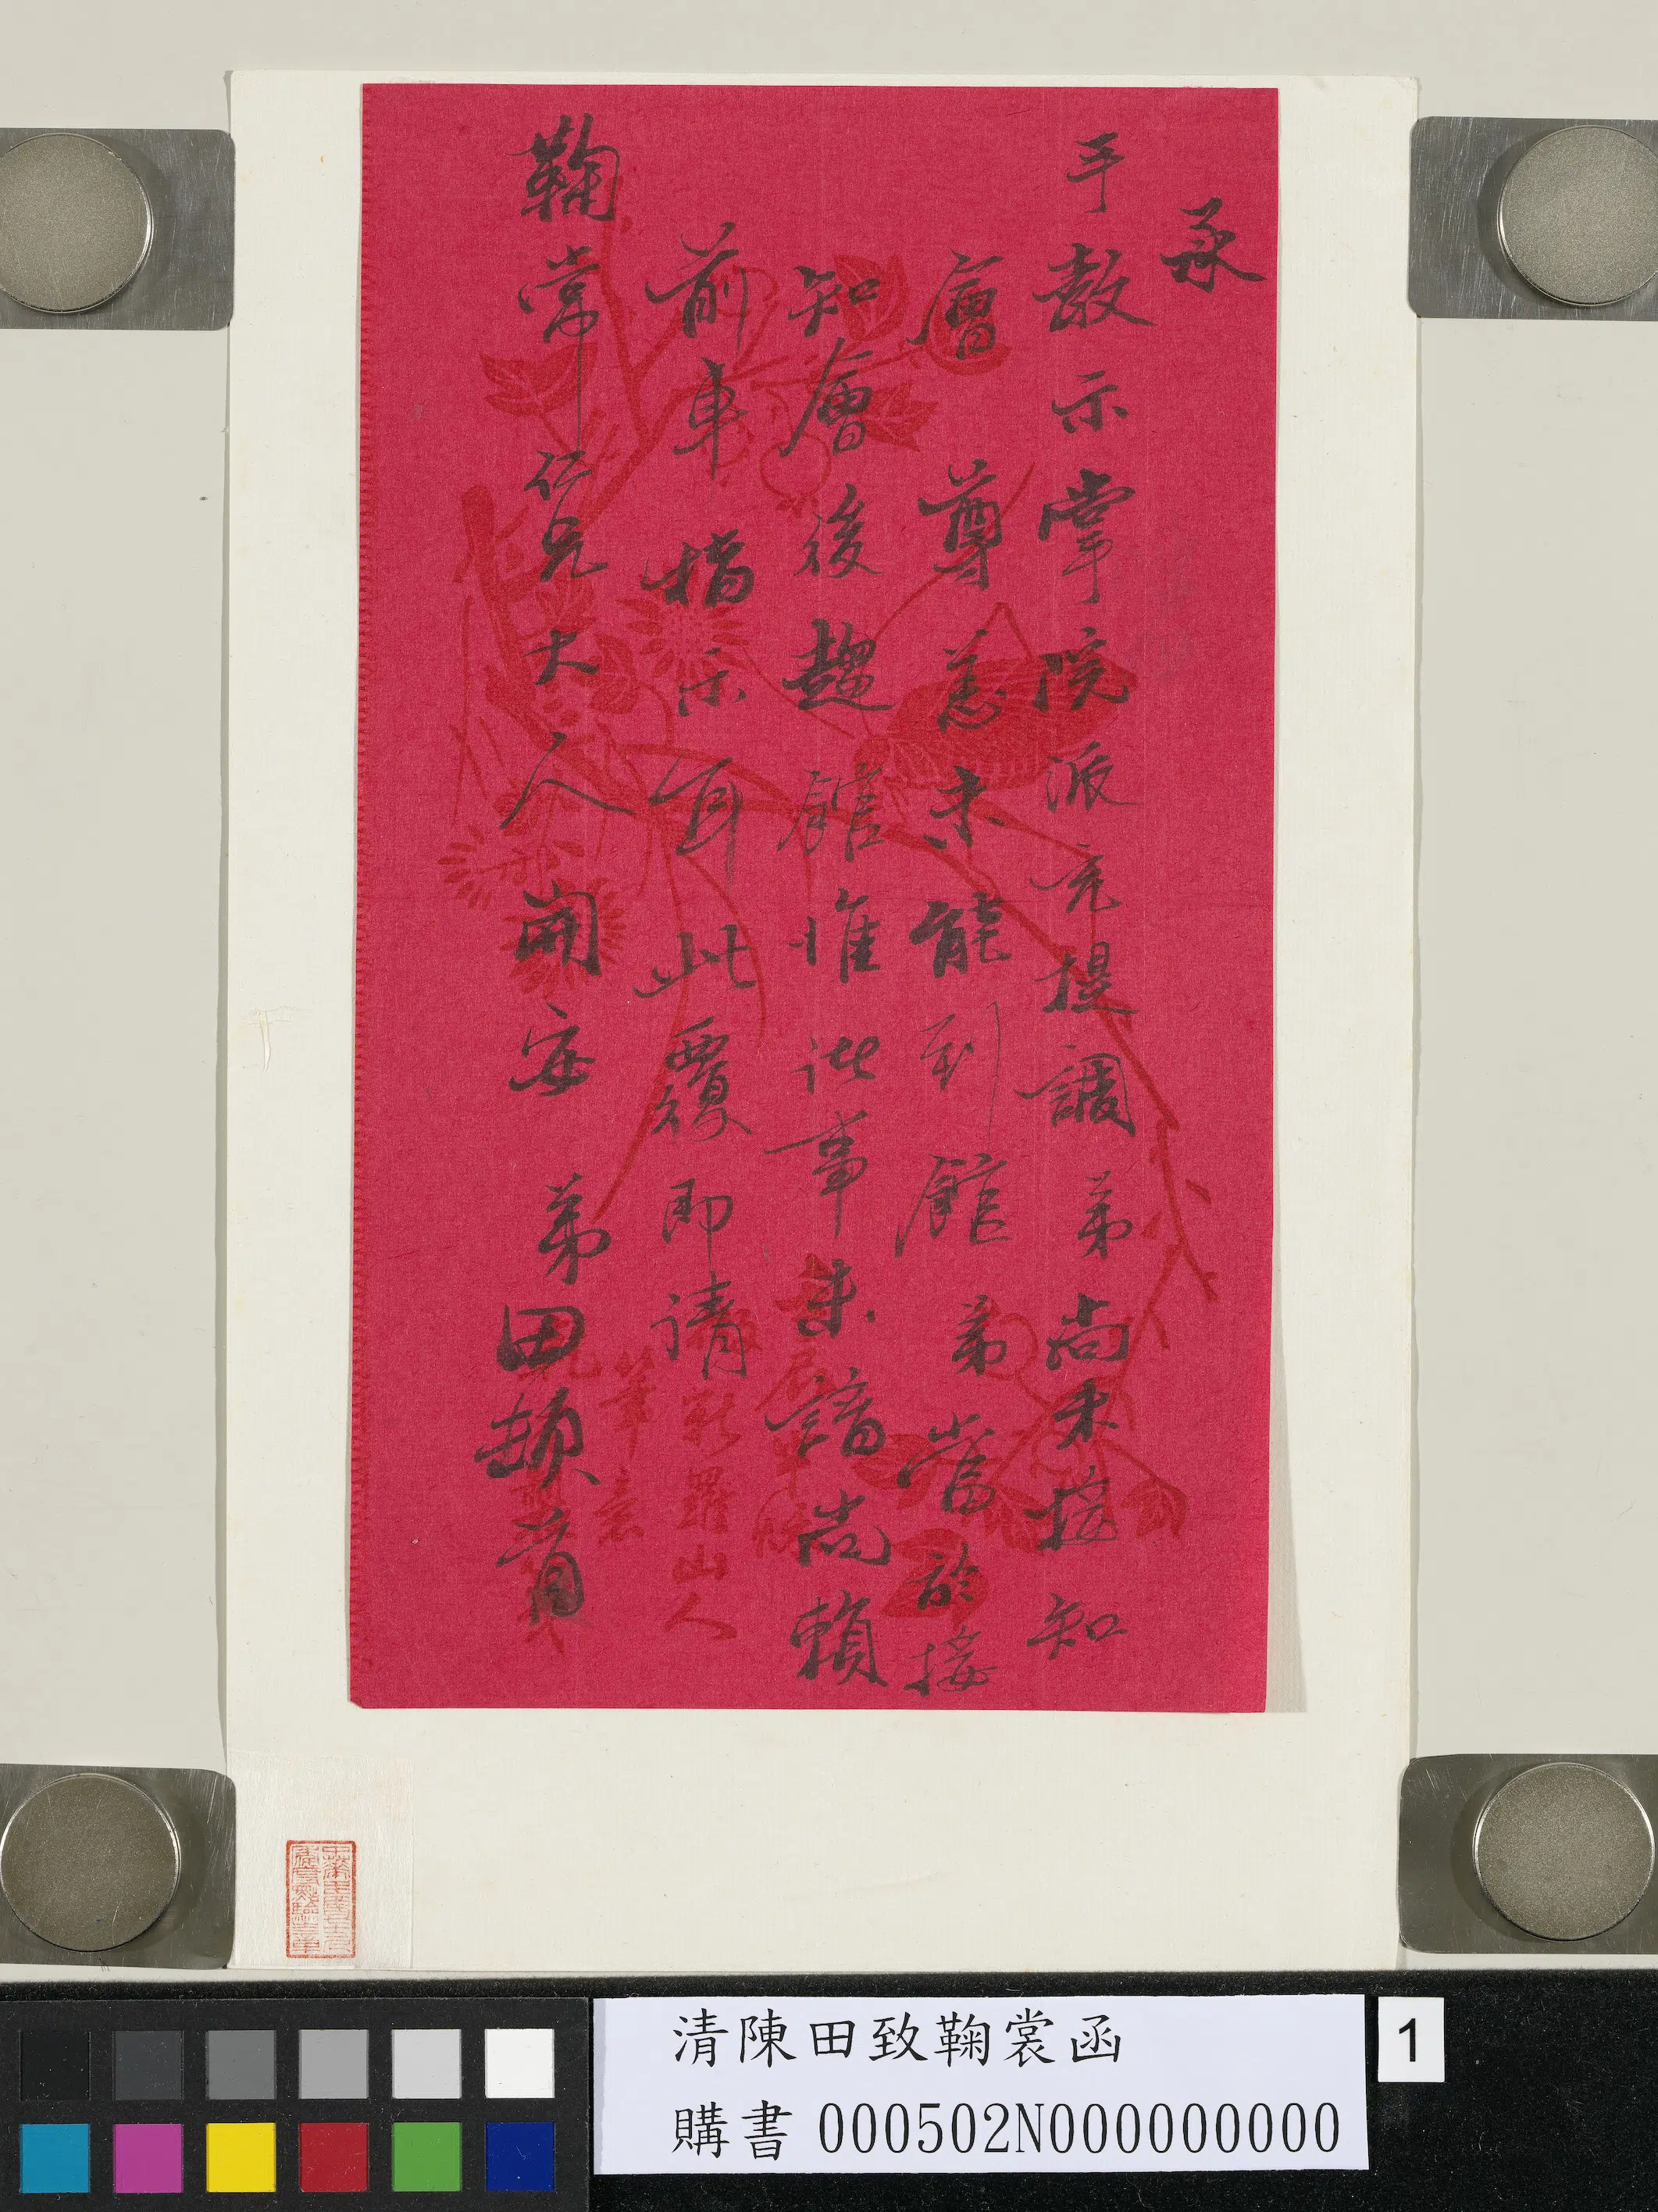 承
手教示掌院派充提調弟尚未接知
會尊恙未能到館弟當於接
知會後趨館惟此事未諳尚賴
前車指示耳此覆即請
鞠常仁兄大人開安 弟田頓首
新羅山人
筆意
清陳田致鞠裳函
購書 000502N000000000
1